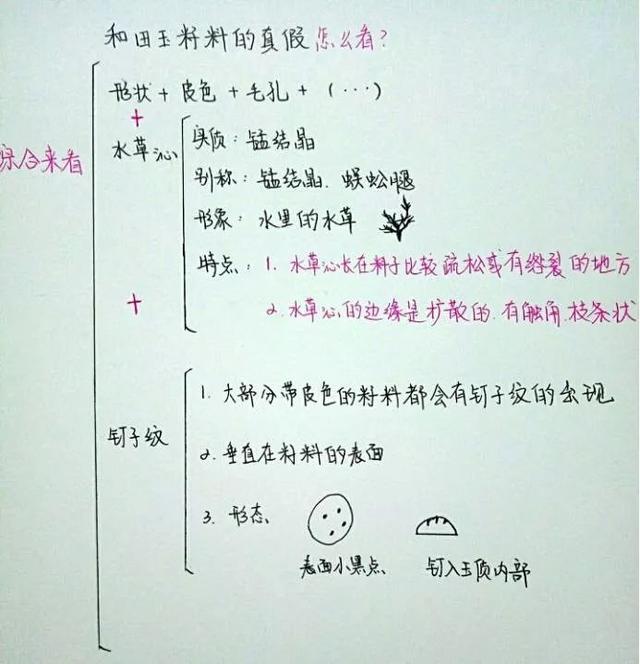 和田玉籽料的真假怎么看?
综合来看
形状 + 皮色 + 毛孔 + (···)
+
水草沁
实质: 锰结晶
别称: 锰结晶. 蜈蚣腿
形象: 水里的水草
特点: 1. 水草沁长在料子比较疏松或有绺裂的地方
2. 水草沁的边缘是扩散的. 有触角. 枝条状
+
钉子纹
1. 大部分带皮色的籽料都会有钉子纹的出现
2. 垂直在籽料的表面
3. 形态、
表面小黑点、
钉入玉质内部